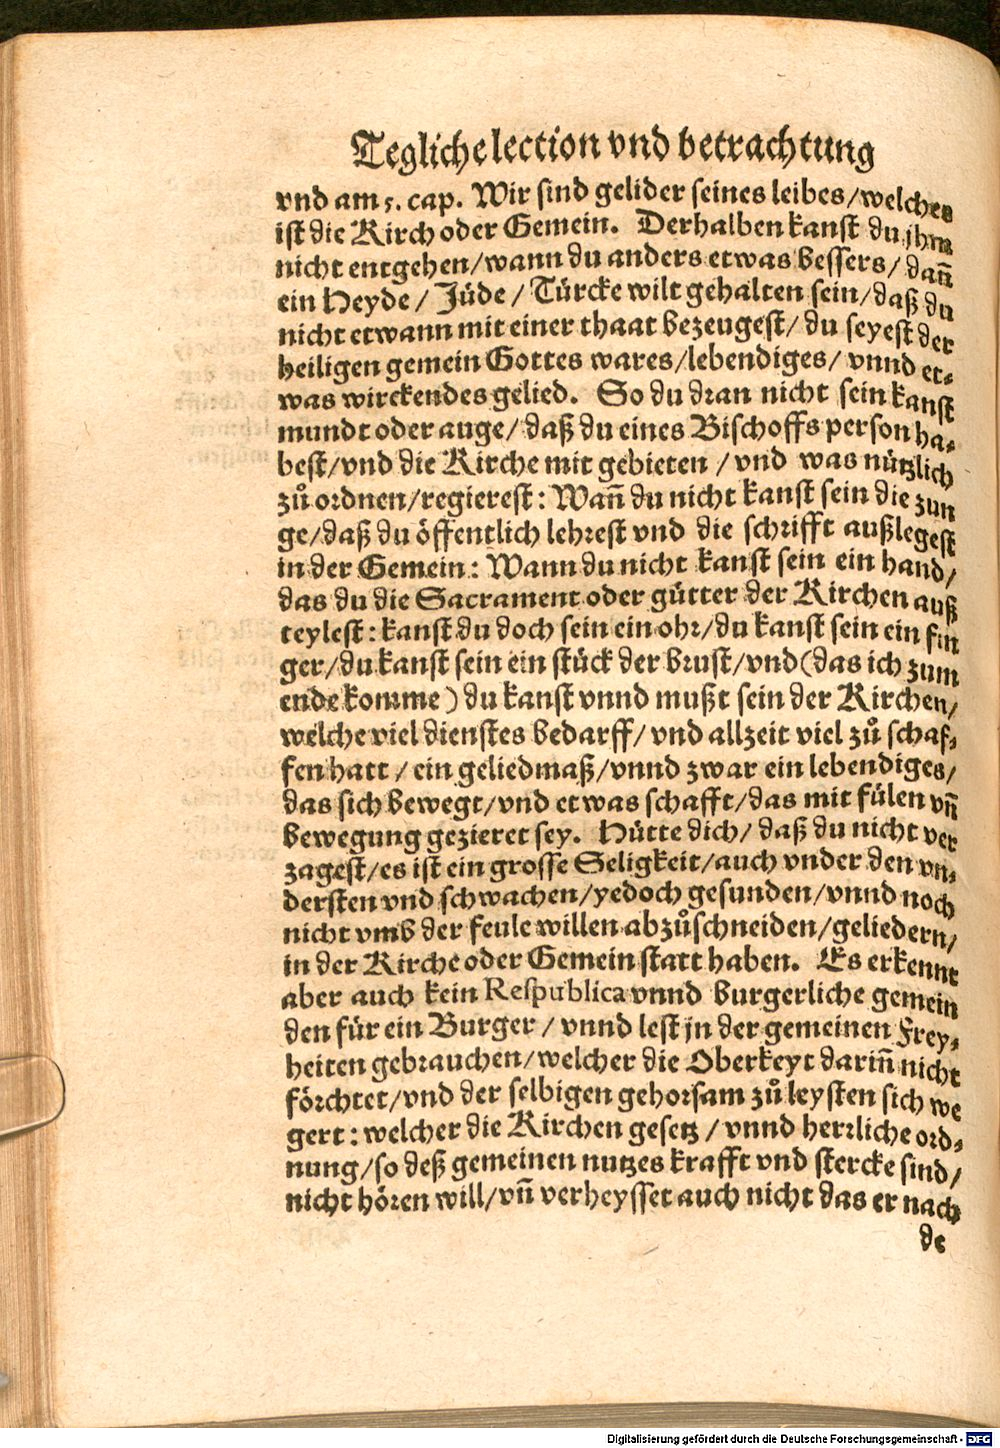 Teglich election vnd betrachtung
vnd am 5. cap. Wir sind gelider seines leibes/welches
ist die Kirch oder Gemein. Derhalben kanst du jhm
nicht entgehen/wann du anders etwas bessers/dañ
ein Heyde/Jüde/Türcke wilt gehalten sein/daß du
nicht etwann mit einer thaat bezeugest/du seyest der
heiligen gemein Gottes wares/lebendiges/vnnd et-
was wirckendes gelied. So du dran nicht sein kanst
mundt oder auge/daß du eines Bischoffs person ha-
best/vnd die Kirche mit gebieten/vnd was nützlich
zů ordnen/regierest: Wañ du nicht kanst sein die zun
ge/daß du öffentlich lehrest vnd die schrifft außlegest
in der Gemein: Wann du nicht kanst sein ein hand/
das du die Sacrament oder gütter der Kirchen auß
teylest: kanst du doch sein ein ohr/du kanst sein ein fin
ger/du kanst sein ein stück der brust/vnd (das ich zum
ende komme) du kanst vnnd mußt sein der Kirchen/
welche viel dienstes bedarff/vnd allzeit viel zů schaf-
fen hatt/ein geliedmaß/vnnd zwar ein lebendiges/
das sich bewegt/vnd etwas schafft/das mit fülen vñ
bewegung gezieret sey. Hütte dich/daß du nicht ver
zagest/es ist ein grosse Seligkeit/auch vnder den vn-
dersten vnd schwachen/yedoch gesunden/vnnd noch
nicht vmb der feule willen abzůschneiden/geliedern/
in der Kirche oder Gemein statt haben. Es erkennt
aber auch kein Respublica vnnd burgerliche gemein
den für ein Burger/vnnd lest jn der gemeinen Frey-
heiten gebrauchen/welcher die Oberkeyt dariñ nicht
förchtet/vnd der selbigen gehorsam zů leysten sich we
gert: welcher die Kirchen gesetz/vnnd herrliche ord-
nung/so deß gemeinen nutzes krafft vnd stercke sind/
nicht hören will/vñ verheysset auch nicht das er nach
de
Digitalisierung gefördert durch die Deutsche Forschungsgemeinschaft - DFG